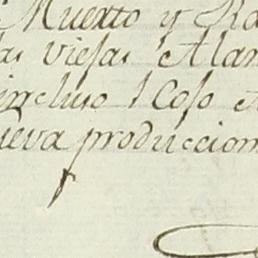 Muerto y Ra
as viejas Alam
incluso 1 Coso
ueva produccion